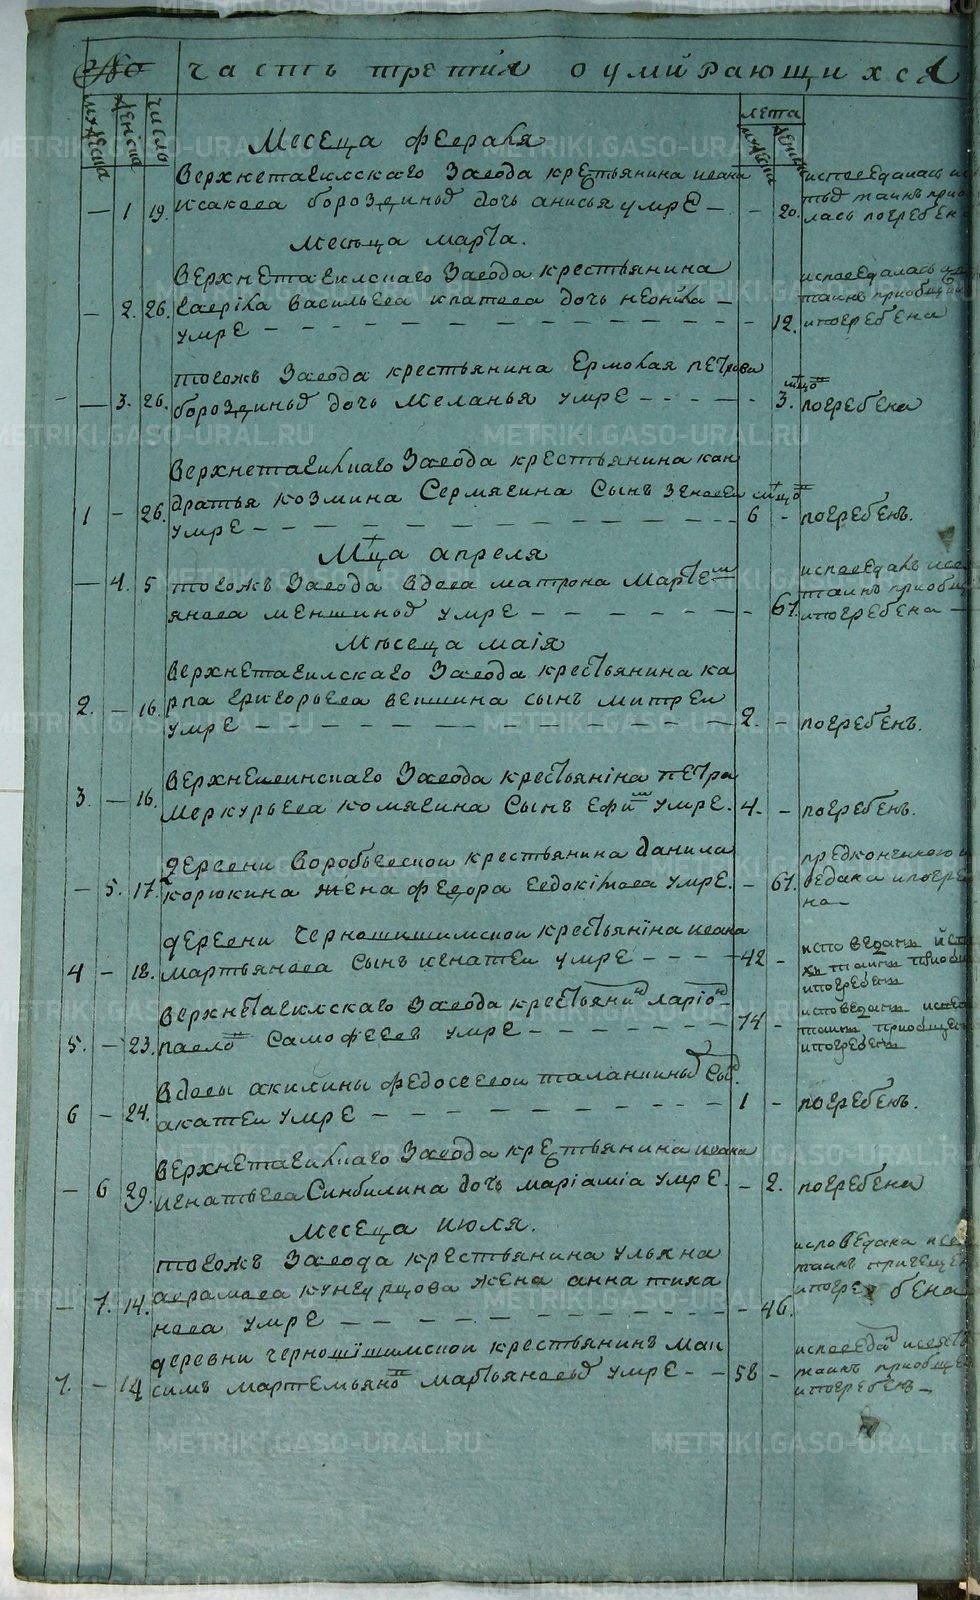 часть третия о умирающихся
мужеска
женска
число
лета
мужеска
женска
Месеца февраля
Верхнетагилскаго Завода крестьянина ивана
— 1 19. исакова бороздиныхъ дочь анисья умре — — 20.
исповедалась
таинъ
лась погребен
Месеца марта.
Верхнетагилскаго Завода крестьянина
— 2. 26. гаврила васильева ипатова дочь неонила —
умре — — — 12.
исповедалась
таинъ приобщ
и погребена
тогожъ Завода крестьянина Ермолая петрова
— 3. 26. бороздиныхъ дочь Меланья умре — — — 3. мцо
погребена
Верхнетагилскаго Завода крестьянина кон
дратья козмина Сермягина Сынъ
1 — 26. умре — — — 6 мцо —
погребенъ.
Мца апреля
— 4. 5 тогожъ Завода вдова матрона Марте
янова меншиныхъ умре — — — 61.
исповедана
таинъ приобщ
и погребена —
Мѣсеца маія
Верхнетагилскаго Завода крестьянина ка
2. — 16. рпа григорьева векшина сынъ митреи
умре — — — 2. —
погребенъ.
Верхнеивинскаго Завода крестьянина петра
3. — 16. Меркурьева комягина Сынъ Ефим умре. 4. —
погребенъ.
деревни Воробьевскои крестьянина данила
— 5. 17. корюкина жена федора Евдокимова умре. — 61.
пред кончиною
ведана и погребе
на —
деревни Черношишимскои крестьянина ивана
4 — 18. мартьянова сынъ игнатеи умре — — — 42 —
исповеданъ
таинъ приобщ
и погребенъ
Верхнетагилскаго Завода крестьянинъ ларіонъ
5. — 23. павловъ Самофеевъ умре — — — 74 —
исповеданъ
таинъ приобще
и погребенъ
Вдовы акилины федосеевои таланкиныхъ сынъ
6 — 24. акатеи умре — — — 1 —
погребенъ.
Верхнетагилскаго Завода крестьянина ивана
— 6 29. игнатьева Синбилина дочь маріамія умре. — 2.
погребена
Месеца июля.
тогожъ Завода крестьянина ульяна
— 7. 14. аврамова кунгурцова жена анна тиха
нова умре — — — 46.
исповедана
таинъ причеще
и погребена
деревни черношишимскои крестьянинъ мак
7. — 14 симъ мартемьяновъ мартьяновыхъ умре — — 58 —
исповеданъ
таинъ приобще
и погребенъ —